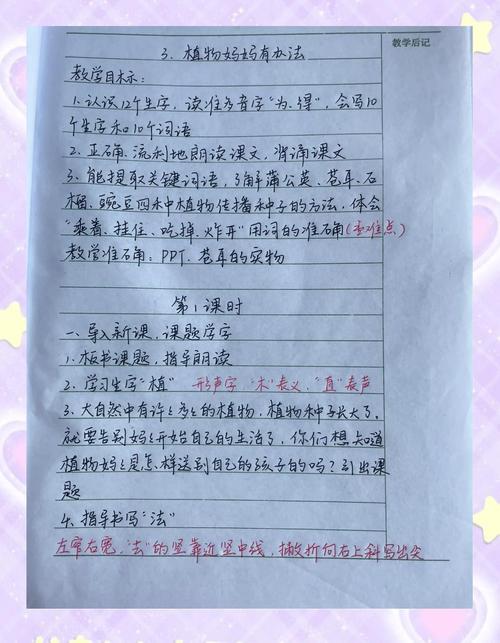 教学后记
3. 植物妈妈有办法
教学目标:
1. 认识12个生字, 读准多音字"为、得", 会写10
个生字和10个词语
2. 正确、流利地朗读课文, 背诵课文
3. 能提取关键词语, 了解蒲公英、苍耳、石
榴、豌豆四种植物传播种子的方法, 体会
"乘着、挂住、吃掉、炸开"用词的准确(重难点)
教学准确: PPT、苍耳的实物
第1课时
一、导入新课, 课题学字
1. 板书课题, 指导朗读
2. 学习生字"植" 形声字 "木"表义、"直"表声
3. 大自然中有许々多々的植物, 植物种子长大了,
就要告别妈々开始自己的生活了, 你们想知道
植物妈々是怎样送别自己的孩子的吗? 引出课
题
4. 指导书写"法"
左窄右宽, "去"的竖靠近竖中线, 撇折向右上斜写出尖